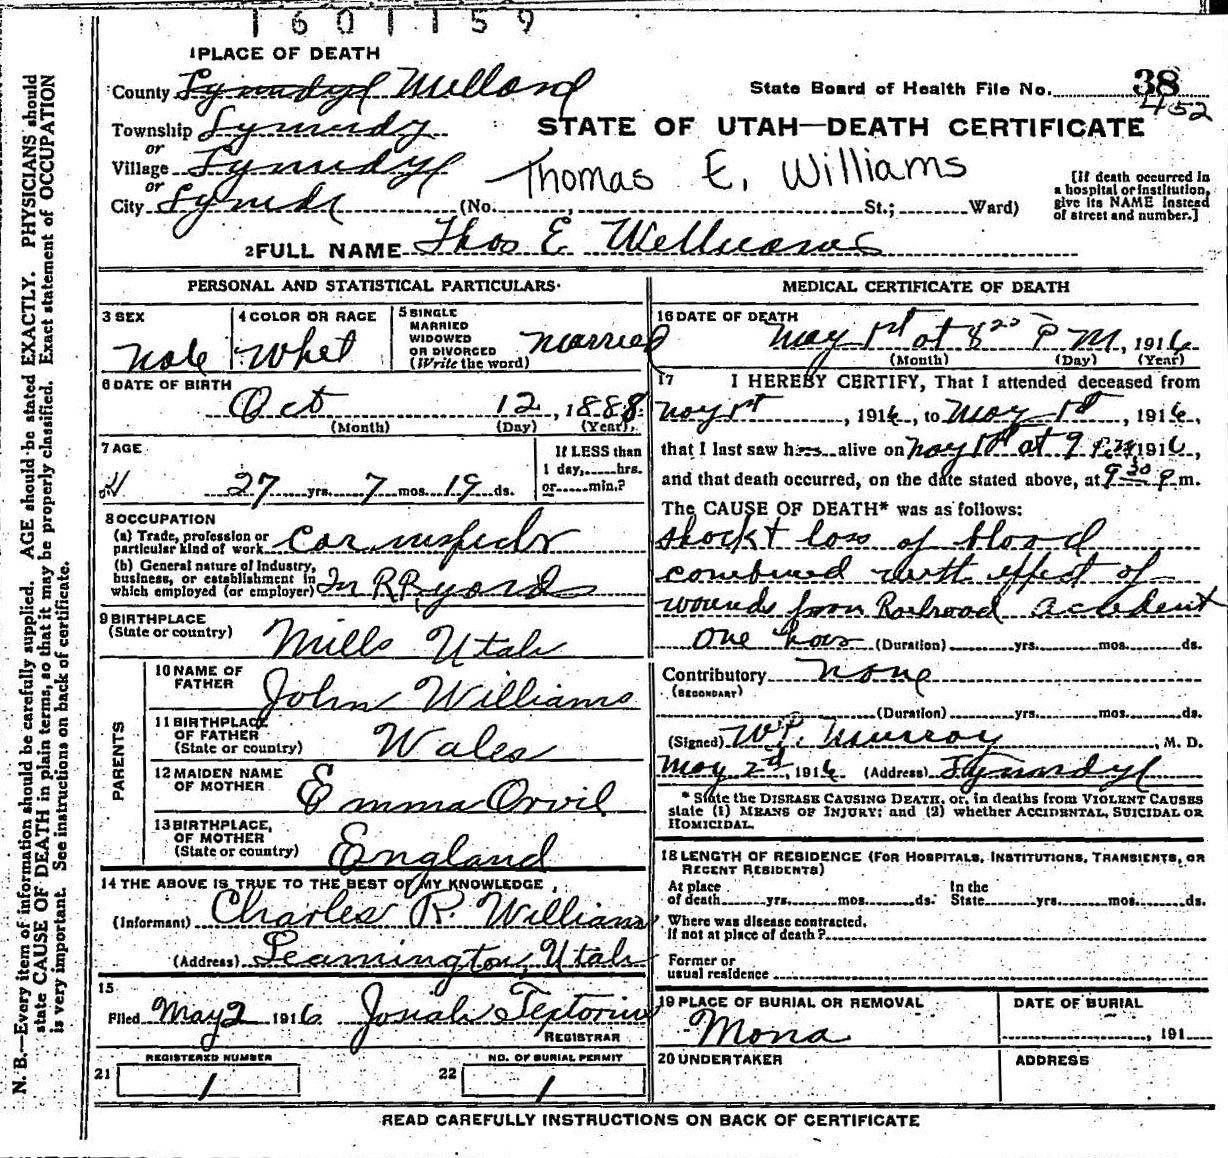 1601159
1 PLACE OF DEATH
County Lynndyl Millard
State Board of Health File No. 38
452
Township Lynndy
STATE OF UTAH—DEATH CERTIFICATE
or
Village Lynndyl
Thomas E. Williams
or
City Lynndl (No. , St.; Ward)
[If death occurred in
a hospital or institution,
give its NAME instead
of street and number.]
2 FULL NAME Thos E Williams
PERSONAL AND STATISTICAL PARTICULARS
3 SEX
Male
4 COLOR OR RACE
Whet
5 SINGLE
MARRIED
WIDOWED
OR DIVORCED
(Write the word)
Married
6 DATE OF BIRTH
Oct 12, 1888
(Month) (Day) (Year)
7 AGE
27 yrs. 7 mos. 19 ds.
If LESS than
1 day, hrs.
or min.?
8 OCCUPATION
(a) Trade, profession or
particular kind of work Car inspector
(b) General nature of Industry,
business, or establishment in
which employed (or employer) In RR yards
9 BIRTHPLACE
(State or country)
Mills Utah
PARENTS
10 NAME OF
FATHER
John Williams
11 BIRTHPLACE
OF FATHER
(State or country)
Wales
12 MAIDEN NAME
OF MOTHER
Emma Orvil
13 BIRTHPLACE,
OF MOTHER
(State or country)
England
14 THE ABOVE IS TRUE TO THE BEST OF MY KNOWLEDGE
(Informant) Charles R. Williams
(Address) Leamington, Utah
15
Filed May 2 1916 Josiah Teptorius
REGISTRAR
REGISTERED NUMBER
21 1
NO. OF BURIAL PERMIT
22 1
MEDICAL CERTIFICATE OF DEATH
16 DATE OF DEATH
May 1st at 8 20 P M, 1916
(Month) (Day) (Year)
17 I HEREBY CERTIFY, That I attended deceased from
May 1st, 1916, to May 1st, 1916,
that I last saw h alive on May 1st at 9 P.M 1916,
and that death occurred, on the date stated above, at 9 30 P m.
The CAUSE OF DEATH* was as follows:
Shock & loss of blood
combined with effect of
wounds from Railroad accident
one hour (Duration) yrs. mos. ds.
Contributory none
(SECONDARY)
(Duration) yrs. mos. ds.
(Signed) W P. Murroy, M. D.
May 2d, 1916 (Address) Lynndyl
* State the DISEASE CAUSING DEATH, or, in deaths from VIOLENT CAUSES
state (1) MEANS OF INJURY; and (2) whether ACCIDENTAL, SUICIDAL OR
HOMICIDAL.
18 LENGTH OF RESIDENCE (FOR HOSPITALS, INSTITUTIONS, TRANSIENTS, OR
RECENT RESIDENTS)
At place
of death yrs. mos. ds.
In the
State yrs. mos. ds.
Where was disease contracted,
If not at place of death?
Former or
usual residence
19 PLACE OF BURIAL OR REMOVAL
Mona
DATE OF BURIAL
, 191
20 UNDERTAKER
ADDRESS
READ CAREFULLY INSTRUCTIONS ON BACK OF CERTIFICATE
N. B.—Every item of information should be carefully supplied. AGE should be stated EXACTLY. PHYSICIANS should
state CAUSE OF DEATH in plain terms, so that it may be properly classified. Exact statement of OCCUPATION
is very important. See instructions on back of certificate.